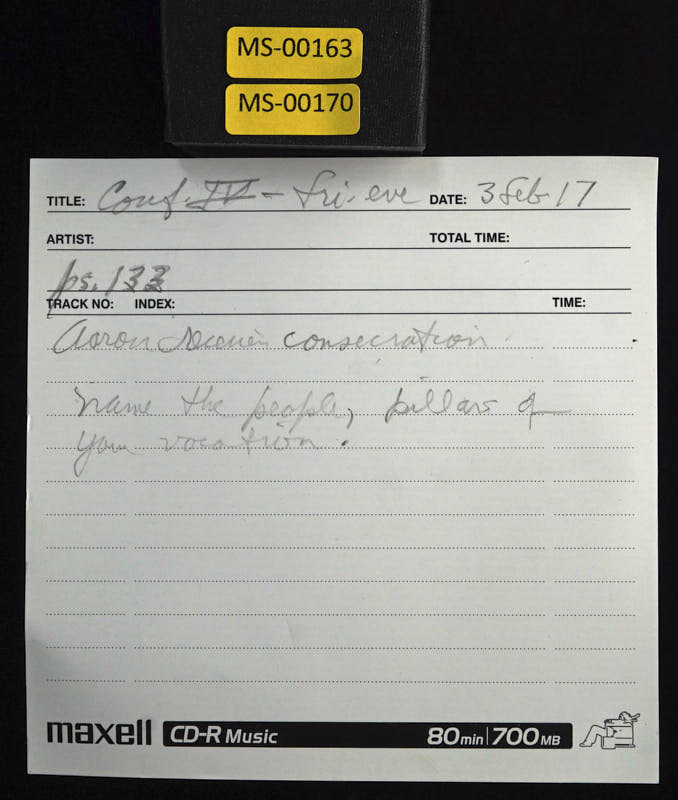 MS-00163
MS-00170
TITLE: Conf. IV - Fri. eve DATE: 3 Feb 17
ARTIST: TOTAL TIME:
ps. 133
TRACK NO: INDEX: TIME:
Aaron receives consecration
Name the people, pillars of
your vocation.
maxell CD-R Music 80min|700MB